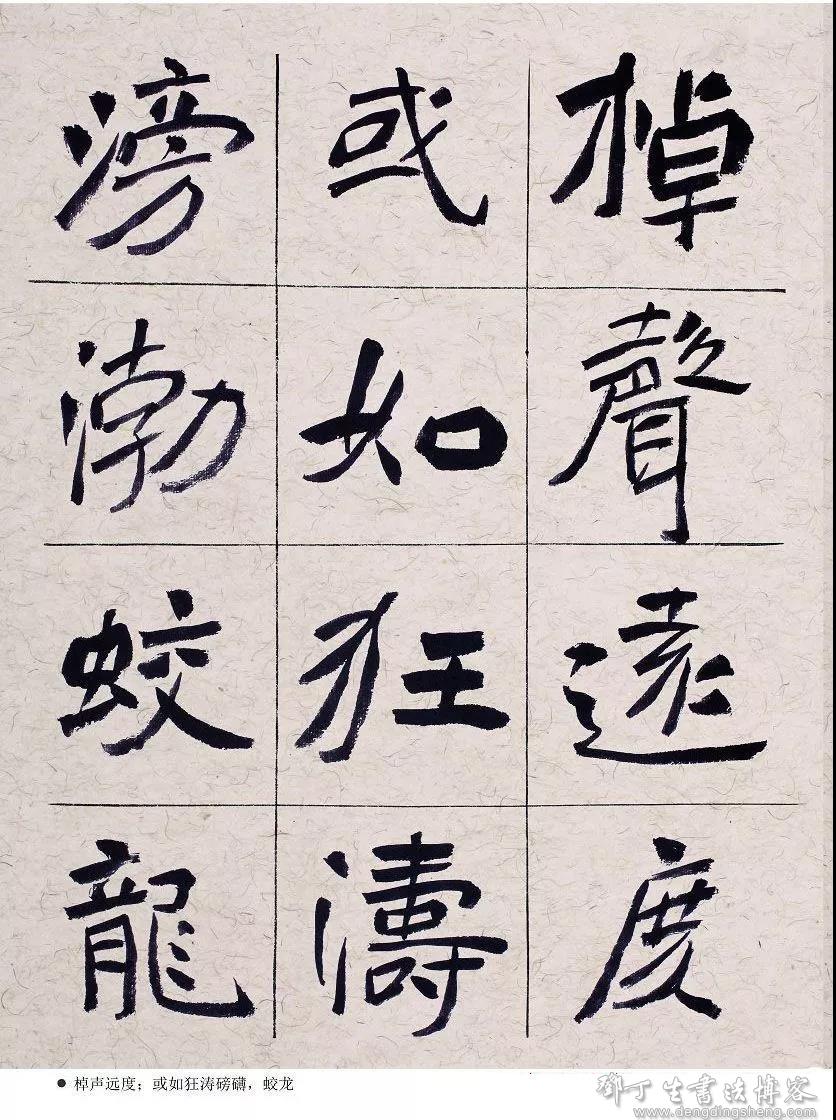 棹聲遠度
或如狂濤
滂渤蛟龍
● 棹声远度；或如狂涛磅礴，蛟龙
鄧丁生書法博客
www.dengdingsheng.com